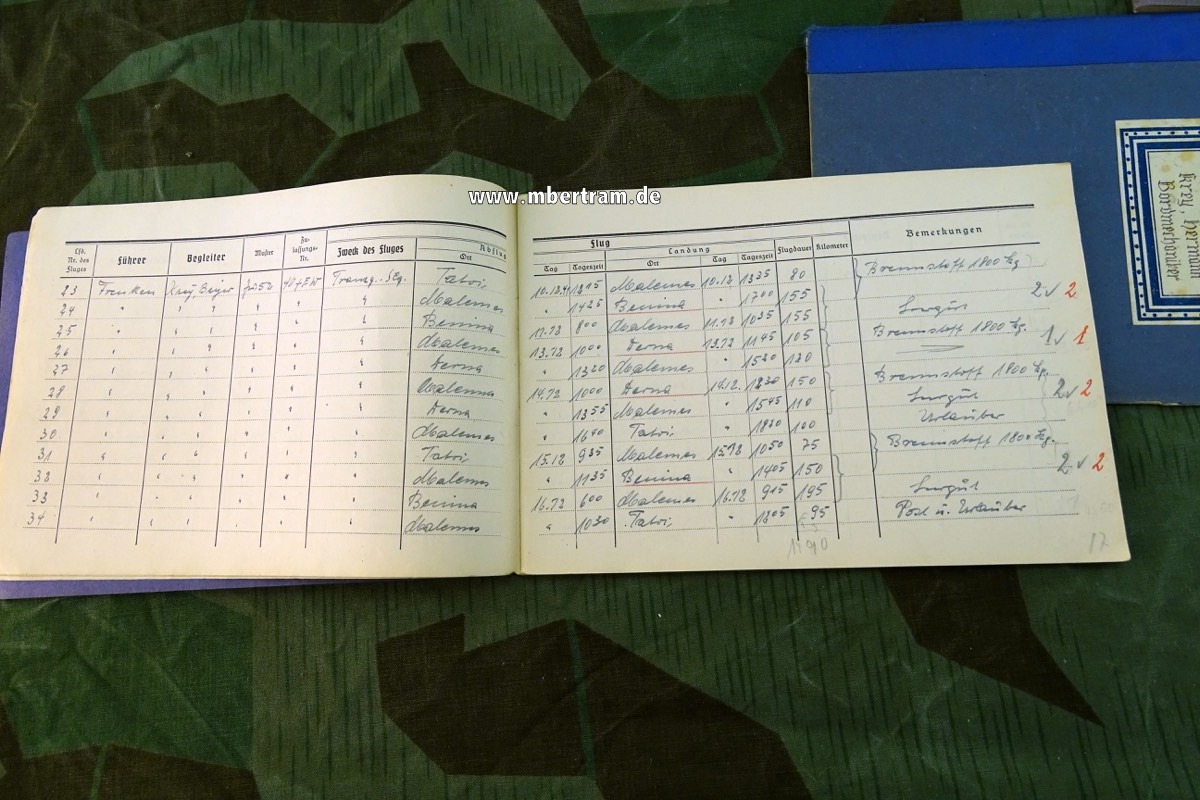 www.mbertram.de
Krey, Hellmut
Bordmechaniker
Lfd. Nr. des Fluges Führer Begleiter Muster Zulassungs-Nr. Zweck des Fluges Abflug Ort
Flug
Tag Tageszeit Landung Ort Tag Tageszeit Flugdauer Kilometer Bemerkungen
23 Franken Krey, Beyer Ju 52 Transp.-Flg. Tatoi 10.12.41 1215 Malemes 10.12 1335 80 Brennstoff 1800 kg
24 " " " " " " Malemes " 1425 Benina " 1700 155 2 √ 2
25 " " " " " " Benina 11.12 800 Malemes 11.12 1035 155
26 " " " " " " Malemes 13.12 1000 Derna 13.12 1145 105 Brennstoff 1800 kg. 1 √ 1
27 " " " " " " Derna " 1320 Malemes " 1520 120
28 " " " " " " Malemes 14.12 1000 Derna 14.12. 1230 150 Brennstoff 1800 kg.
29 " " " " " " Derna " 1355 Malemes " 1545 110 2 √ 2
30 " " " " " " Malemes " 1640 Tatoi " 1820 100 Urlauber
31 " " " " " " Tatoi 15.12 935 Malemes 15.12 1050 75 Brennstoff 1800 kg.
32 " " " " " " Malemes " 1135 Benina " 1405 150 2 √ 2
33 " " " " " " Benina 16.12 600 Malemes 16.12 915 195
34 " " " " " " Malemes " 1030 Tatoi " 1205 95 Post u. Urlauber
1490
17